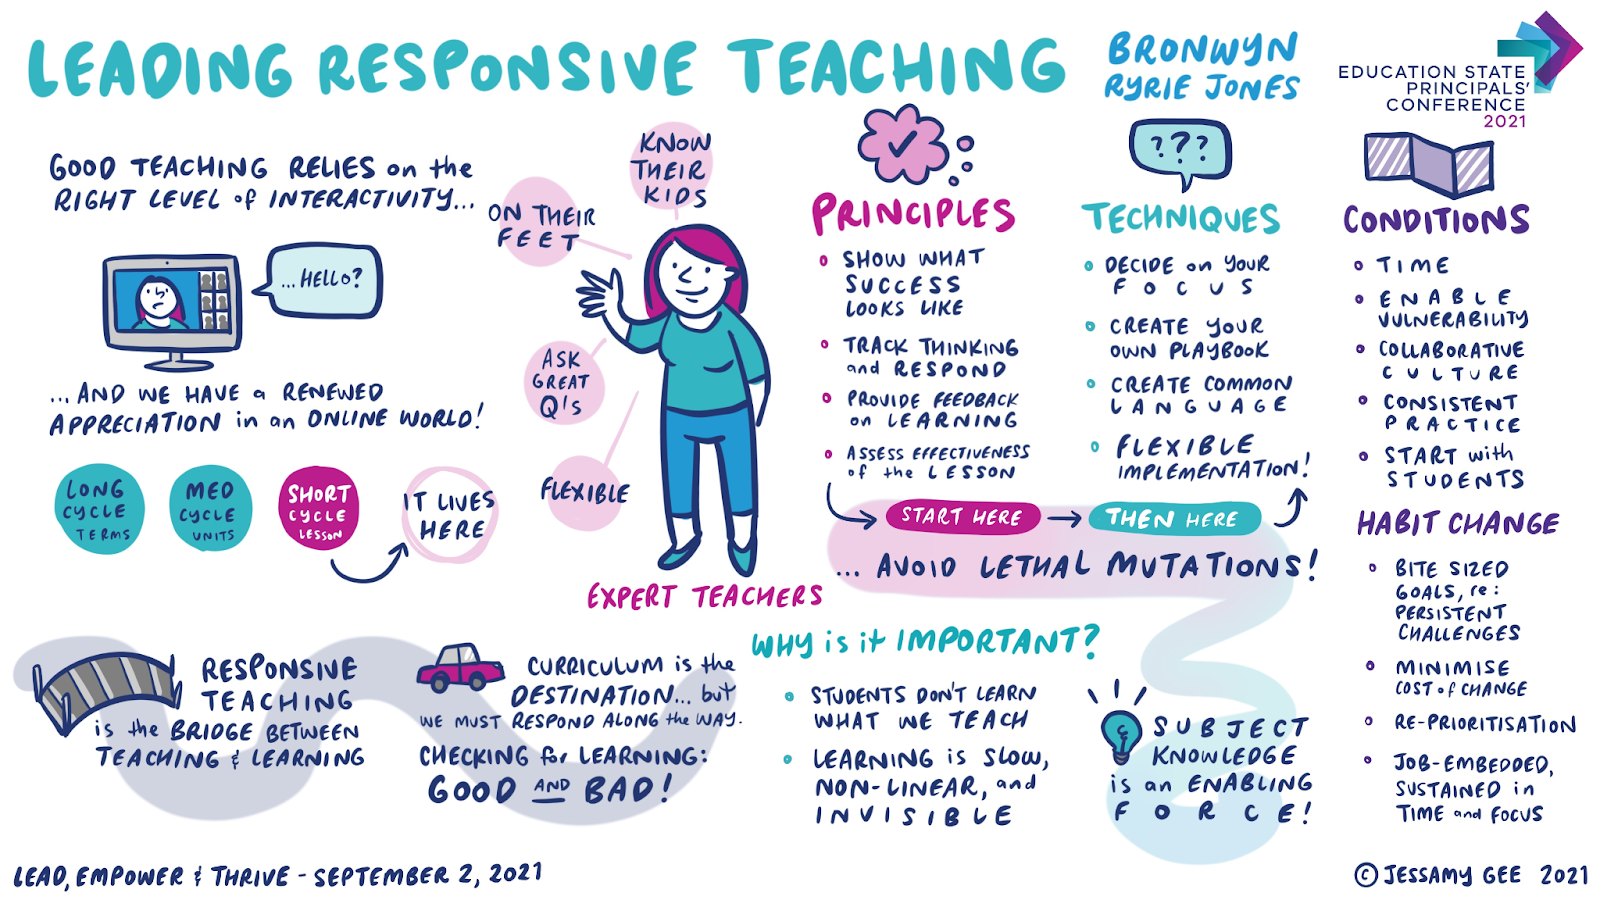 LEADING RESPONSIVE TEACHING
BRONWYN
RYRIE JONES
EDUCATION STATE
PRINCIPALS'
CONFERENCE
2021
GOOD TEACHING RELIES on the
RIGHT LEVEL of INTERACTIVITY...
...HELLO?
...AND WE HAVE a RENEWED
APPRECIATION in an ONLINE WORLD!
LONG
CYCLE
TERMS
MED
CYCLE
UNITS
SHORT
CYCLE
LESSON
IT LIVES
HERE
KNOW
THEIR
KIDS
ON THEIR
FEET
ASK
GREAT
Q'S
FLEXIBLE
EXPERT TEACHERS
PRINCIPLES
SHOW WHAT
SUCCESS
LOOKS LIKE
TRACK THINKING
and RESPOND
PROVIDE FEEDBACK
on LEARNING
ASSESS EFFECTIVENESS
of the LESSON
???
TECHNIQUES
DECIDE on YOUR
FOCUS
CREATE YOUR
OWN PLAYBOOK
CREATE COMMON
LANGUAGE
FLEXIBLE
IMPLEMENTATION!
START HERE
THEN HERE
... AVOID LETHAL MUTATIONS!
CONDITIONS
TIME
ENABLE
VULNERABILITY
COLLABORATIVE
CULTURE
CONSISTENT
PRACTICE
START with
STUDENTS
HABIT CHANGE
BITE SIZED
GOALS, re:
PERSISTENT
CHALLENGES
MINIMISE
COST of CHANGE
RE-PRIORITISATION
JOB-EMBEDDED,
SUSTAINED in
TIME and FOCUS
RESPONSIVE
TEACHING
is the BRIDGE BETWEEN
TEACHING & LEARNING
CURRICULUM is the
DESTINATION... but
WE MUST RESPOND ALONG the WAY.
CHECKING for LEARNING:
GOOD AND BAD!
WHY is it IMPORTANT?
STUDENTS DON'T LEARN
WHAT WE TEACH
LEARNING is SLOW,
NON-LINEAR, and
INVISIBLE
SUBJECT
KNOWLEDGE
is an ENABLING
FORCE!
LEAD, EMPOWER & THRIVE - SEPTEMBER 2, 2021
© JESSAMY GEE 2021